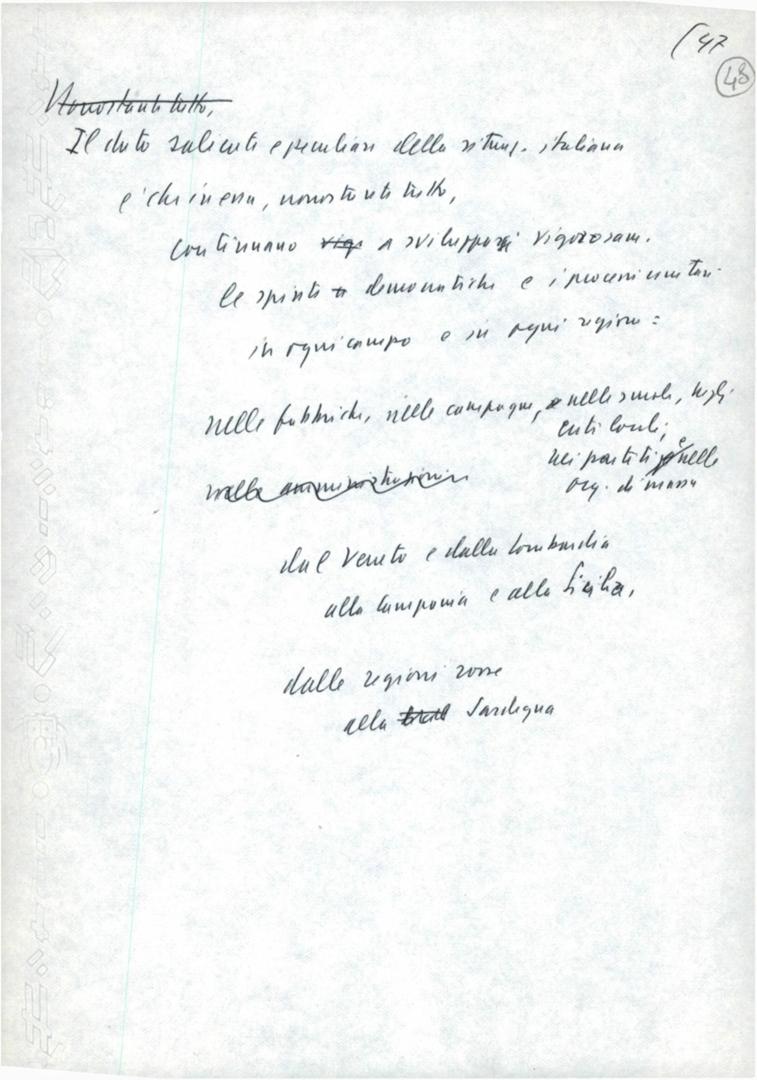 (47
48
Nonostante tutto,
Il dato saliente e peculiare della situaz. italiana
è che in essa, nonostante tutto,
continuano vig a svilupparsi vigorosam.
le spinte democratiche e i processi unitari
in ogni campo e in ogni regione:
nelle fabbriche, nelle campagne, nelle scuole, negli
enti locali;
nei partiti e nelle
org. di massa
nelle amministrazioni
dal Veneto e dalla Lombardia
alla Campania e alla Sicilia,
dalle regioni rosse
alla Sardegna